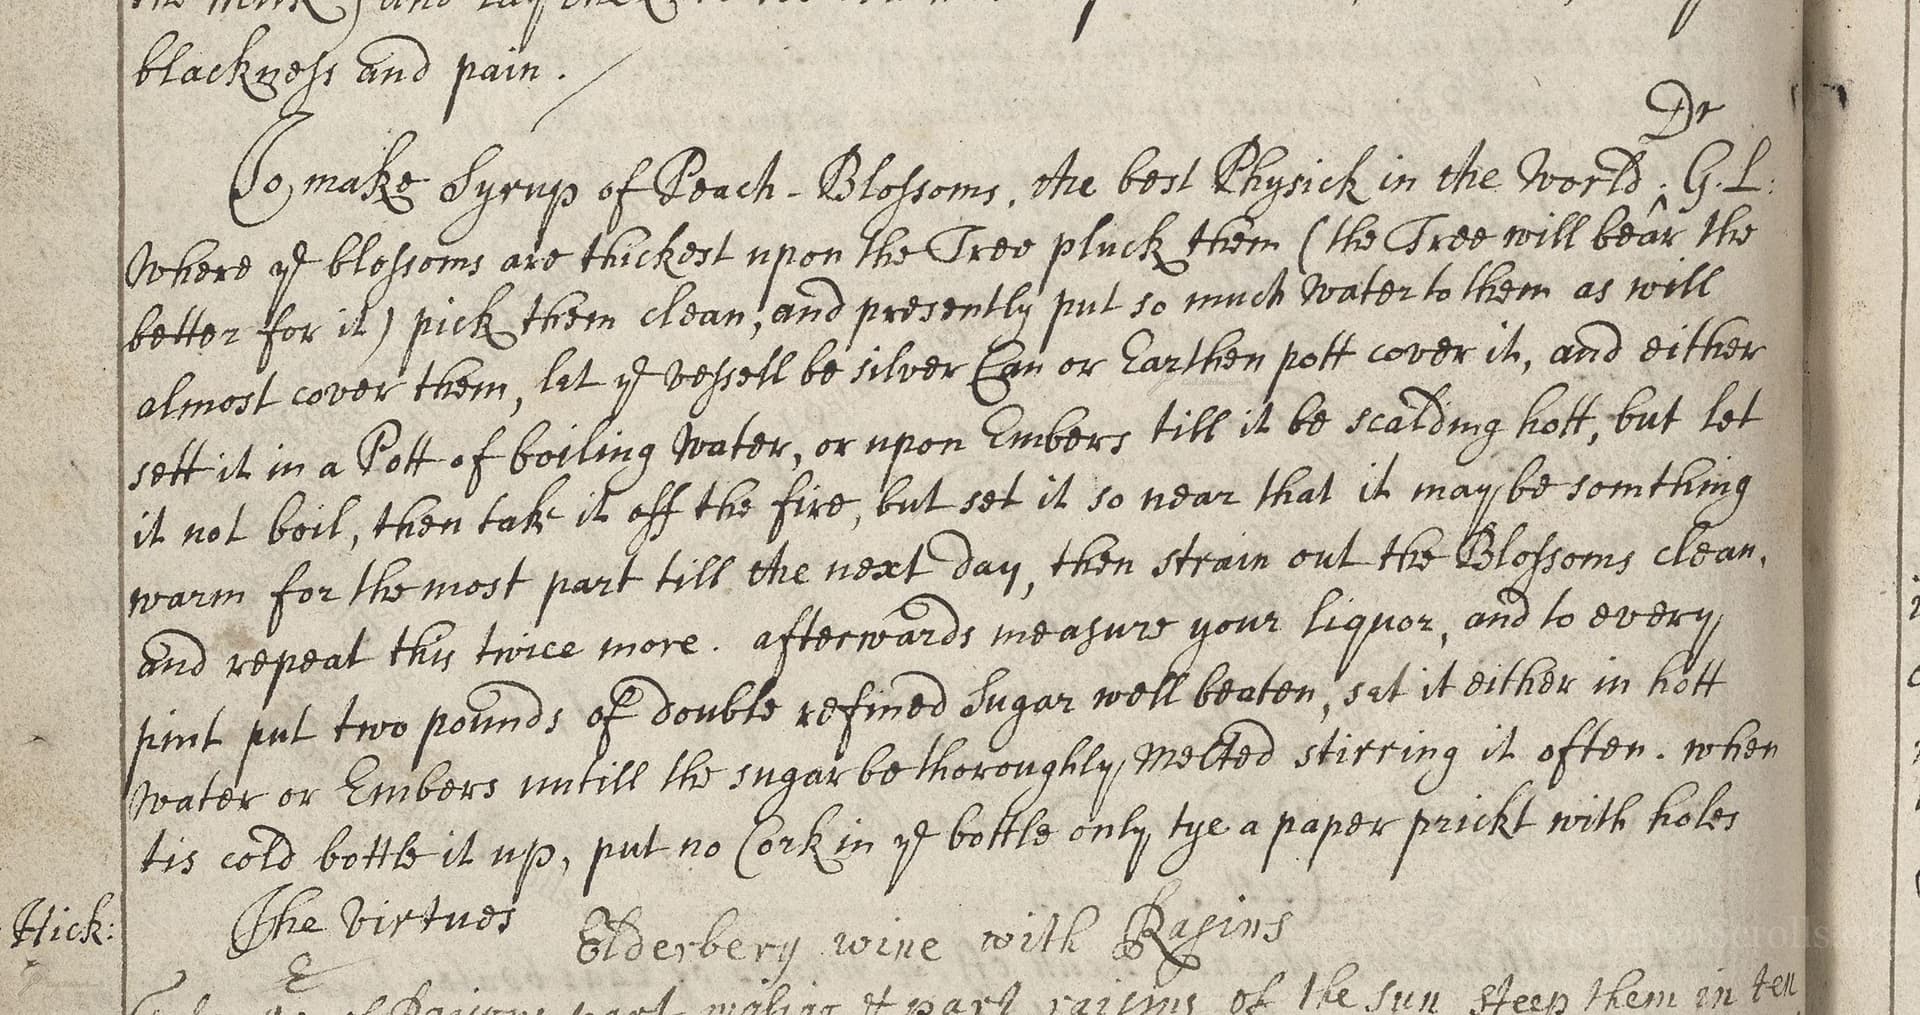 blackness and pain.
Dr
To make Syrup of Peach-Blossoms, the best Physick in the World. G.L:
Where ye blossoms are thickest upon the Tree pluck them (the Tree will bear the
better for it) pick them clean, and presently put so much Water to them as will
almost cover them, let ye vessell be silver Can or Earthen pott cover it, and either
sett it in a Pott of boiling Water, or upon Embers till it be scalding hott, but let
it not boil, then take it off the fire, but set it so near that it may be somthing
warm for the most part till the next day, then strain out the Blossoms clean,
and repeat this twice more. afterwards measure your liquor, and to every
pint put two pounds of double refined Sugar well beaten, set it either in hott
Water or Embers untill the sugar be thoroughly Melted stirring it often. when
tis cold bottle it up, put no Cork in ye bottle only tye a paper prickt with holes
Hick: The Virtues Elderbery wine with Rasins
part raisins of the sun steep them in ten